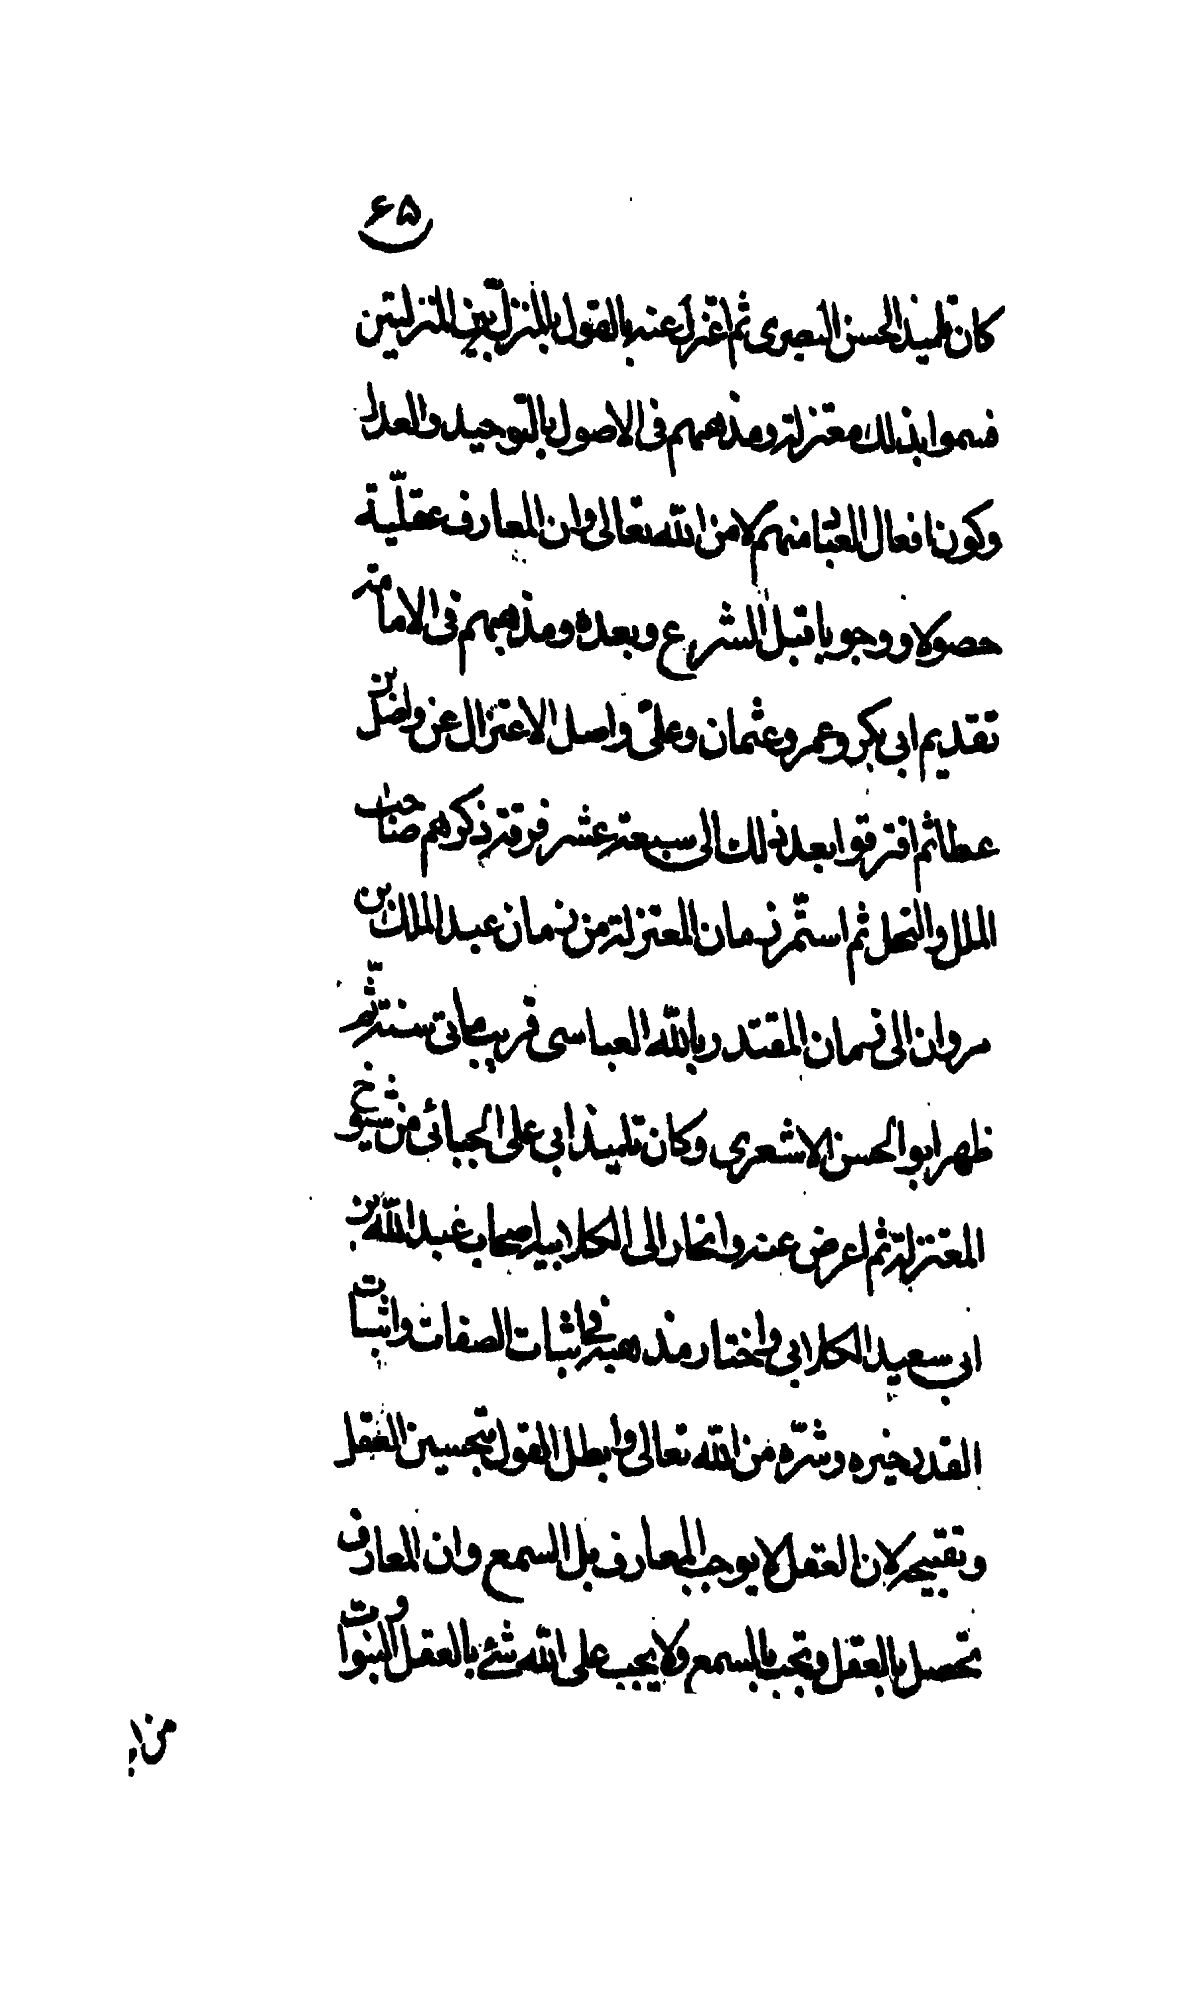 ۶۵
كان تلميذ الحسن البصرى ثم اعتزل عنه بالقول بالمنزلة بين المنزلتين
فسموا بذلك معتزلة ومذهبهم فى الاصول بالتوحيد والعدل
وكون افعال العباد منهم لا من الله تعالى وان المعارف عقلّية
حصولا ووجوبا قبل الشرع وبعده ومذهبهم فى الامامة
تقديم ابى بكر وعمر وعثمان وعلىّ واصل الاعتزال عن واصل بن
عطا ثم افترقوا بعد ذلك الى سبعة عشر فرقة ذكرهم صاحب
الملل والنحل ثم استمّر زمان المعتزلة من زمان عبد الملك بن
مروان الى زمان المقتدر بالله العباسى قريب مأتى سنة ثّم
ظهر ابو الحسن الاشعرى وكان تلميذ ابى على الجبائى من شيوخ
المعتزلة ثم اعرض عنه وانحاز الى الكلابية اصحاب عبد الله بن
ابى سعيد الكلابى واختار مذهبه فى اثبات الصفات واثبات
القدر خيره وشرّه من الله تعالى وابطل القول بتحسين العقل
وتقبيحه لان العقل لا يوجب المعارف بل السمع وان المعارف
تحصل بالعقل وتجب بالسمع ولا يجب على الله شئ بالعقل والنبوات
من ا